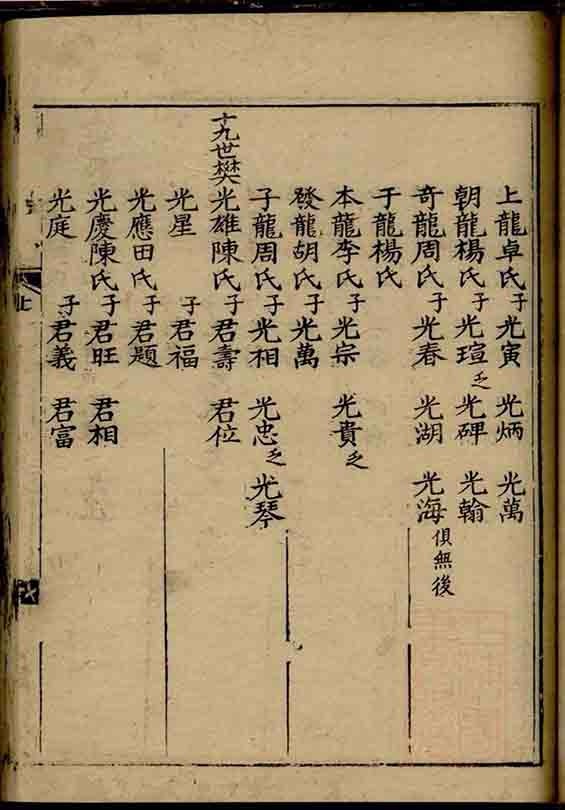 上龍卓氏子光寅 光炳 光萬
朝龍楊氏子光瑄乏 光碑 光翰
奇龍周氏子光春 光湖 光海俱無後
于龍楊氏
本龍李氏子光宗 光貴乏
發龍胡氏子光萬
子龍周氏子光相 光忠乏 光琴
十九世樊光雄陳氏子君壽 君位
光星 子君福
光應田氏子君題
光慶陳氏子君旺 君相
光庭 子君義 君富
上